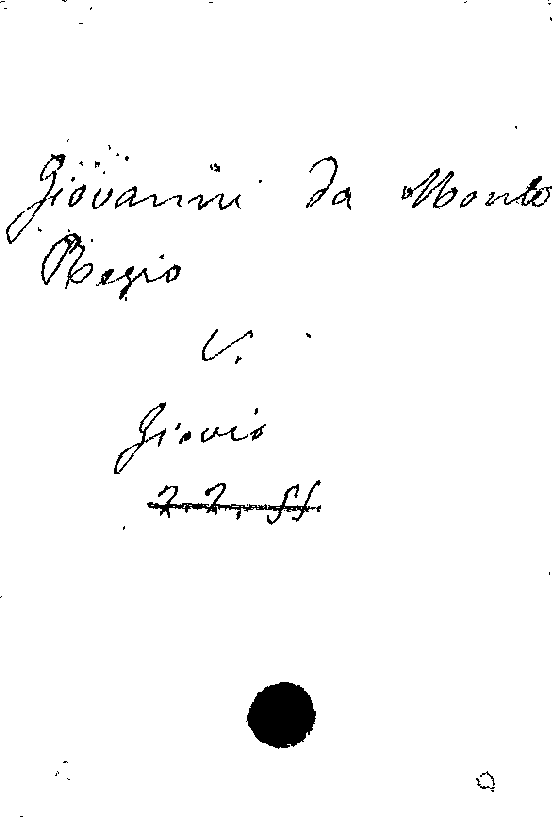 Giovanni da Monte
Regio
V.
Giovio
2.2.ff.